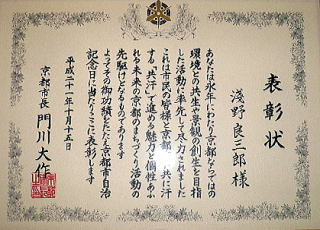 表彰状
淺野良三郎様
あなたは永年にわたり京都ならではの
環境との共生や景観の創生を目指
した活動に率先して尽力されました
これは市民の皆様と京都市が共に汗
する「共汗」で進める魅力と個性あふ
れる未来の京都のまちづくり活動の
先駆けとなるものであります
よってその御功績をたたえ京都市自治
記念日に当たりここに表彰します
平成二十一年十月十五日
京都市長 門川大作